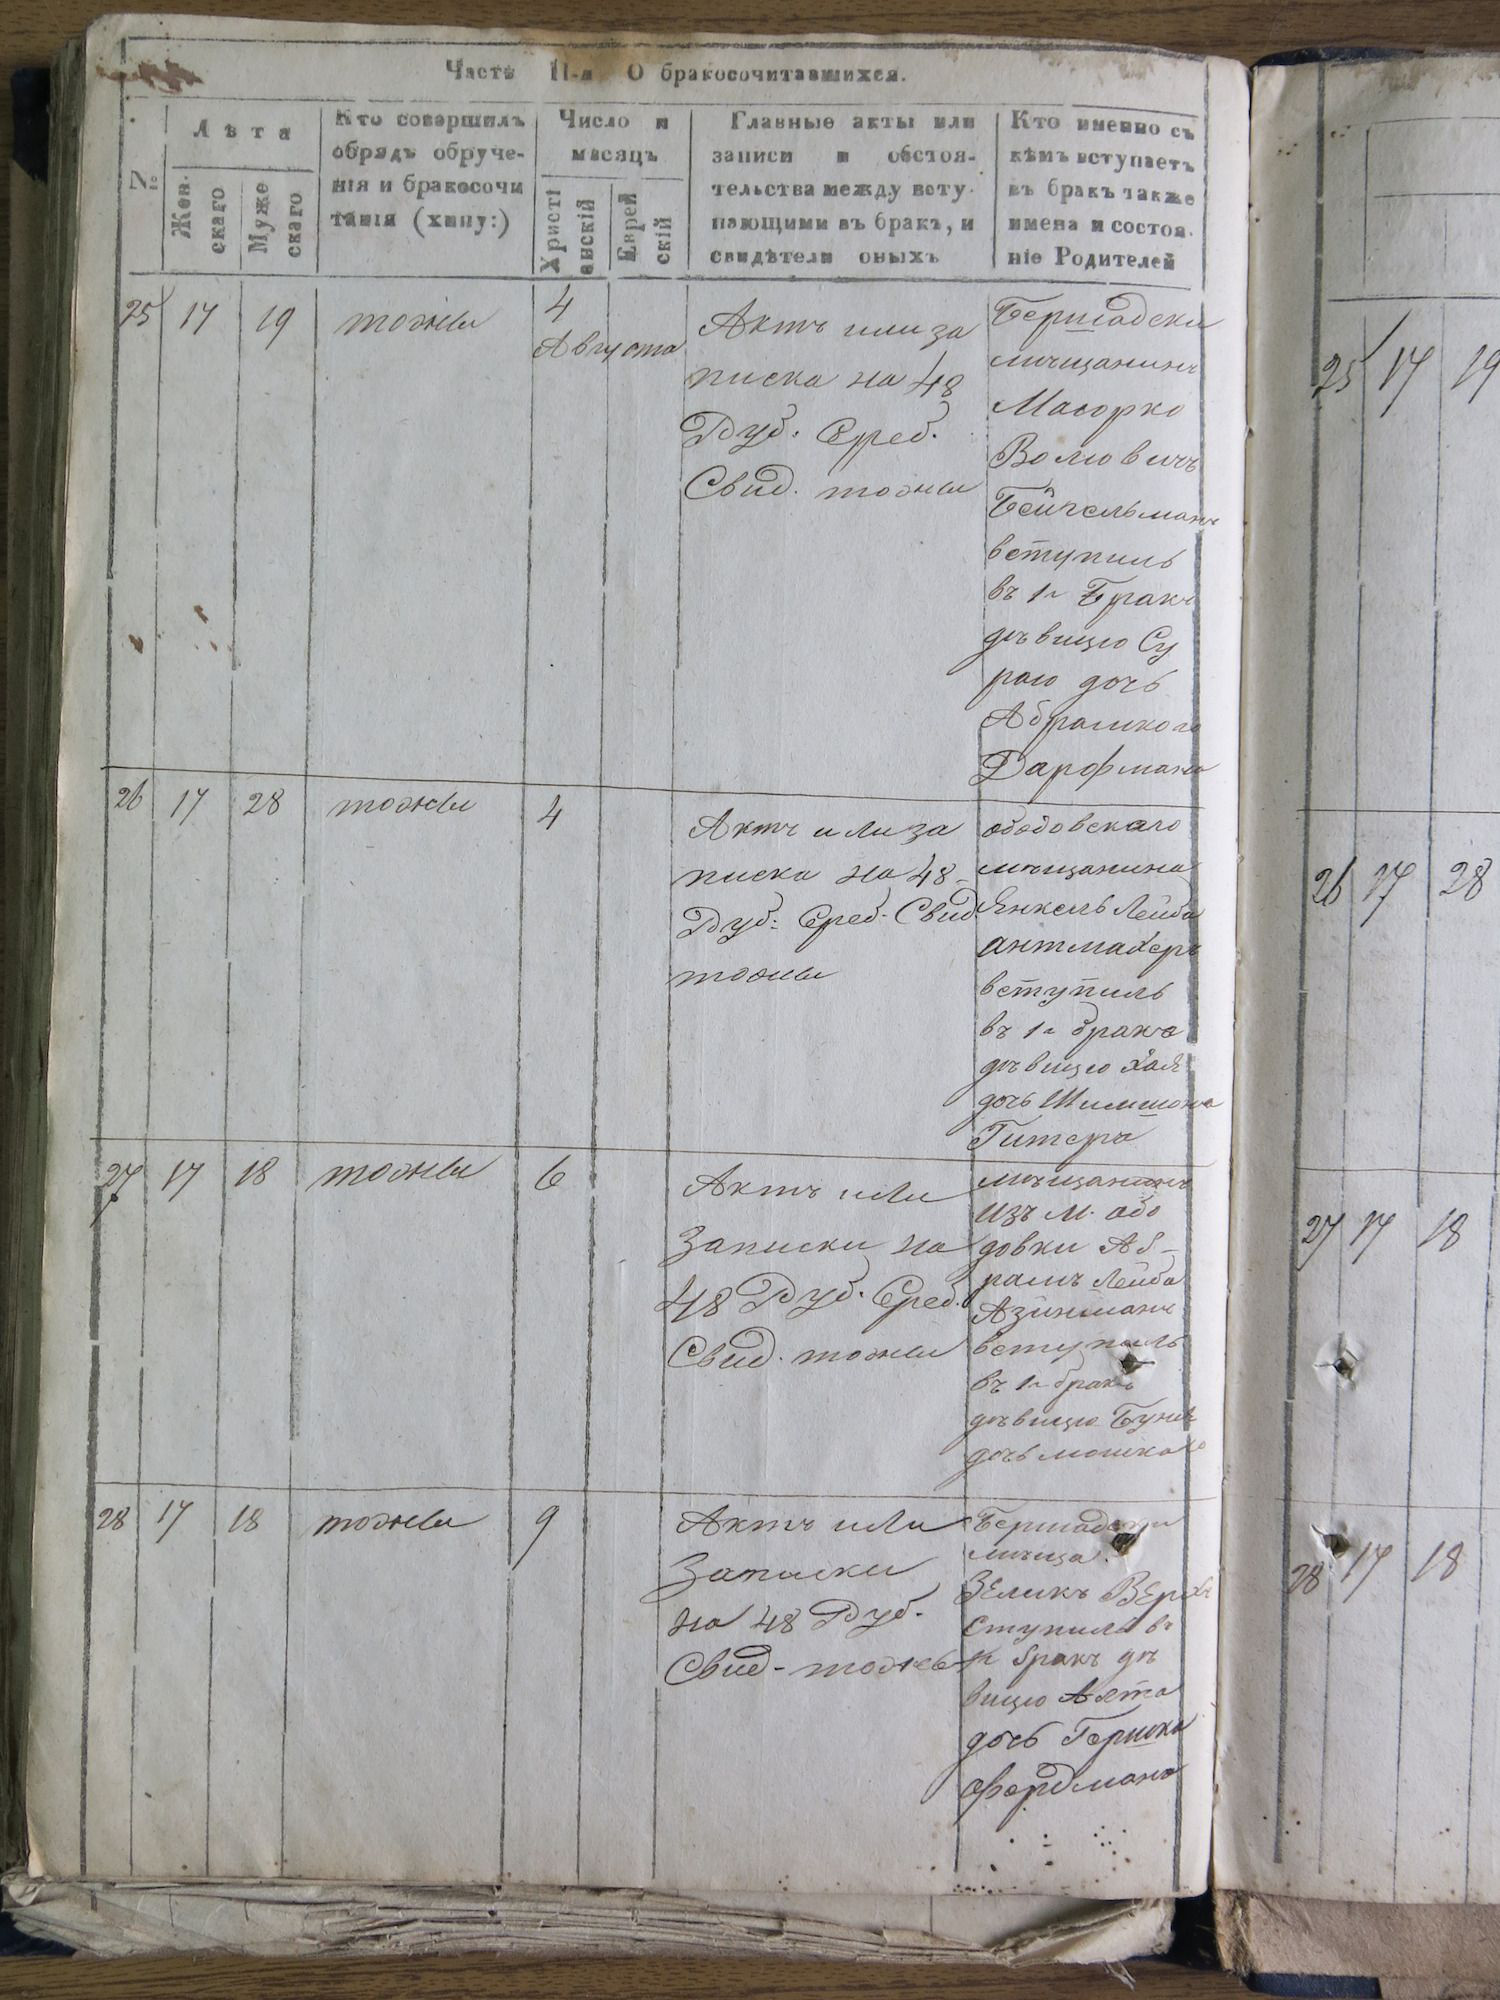 Часть II-я О бракосочитавшихся.
№
Лѣта
Женскаго
Мужескаго
Кто совершилъ
обрядъ обруче-
нія и бракосочи
танія (хипу:)
Число и
мѣсяцъ
Христіанскій
Еврейскій
Главные акты или
записи и обстоя-
тельства между всту-
пающими въ бракъ, и
свидѣтели оныхъ
Кто именно съ
кѣмъ вступаетъ
въ бракъ также
имена и состоя-
ніе Родителей
25 17 19 тожеы 4
Августа
Актъ или за
писка на 48
Руб: Среб.
Свид. тожеы
Бершадски
мѣщанинъ
Масорко
Волковичъ
вступилъ
въ 1й Бракъ
дѣвицю Су
рою дочь
Абрамкого
26 17 28 тожеы 4
Актъ или за
писка на 48
Руб: Среб. Свид
тожеы
ободовскаго
мѣщанина
Янкель Лейба
антмахеръ
вступилъ
въ 1й бракъ
дѣвицю Хая
дочь Шимшона
Гитера
27 17 18 тожеы 6
Актъ или
Записки на
48 Руб. Среб.
Свид. тожеы
мѣщанинъ
изъ м. обо
довки Аб-
рамъ Лейба
вступилъ
въ 1й бракъ
дѣвицю Буня
дочь мошка
28 17 18 тожеы 9
Актъ или
Записки
на 48 Руб.
Свид-тожеы
Бершадски
мѣща.
Зеликъ
ступилъ въ
1й бракъ дѣ
вицю
дочь Гершка
Фердмана
25 17 19
26 17 28
27 17 18
28 17 18